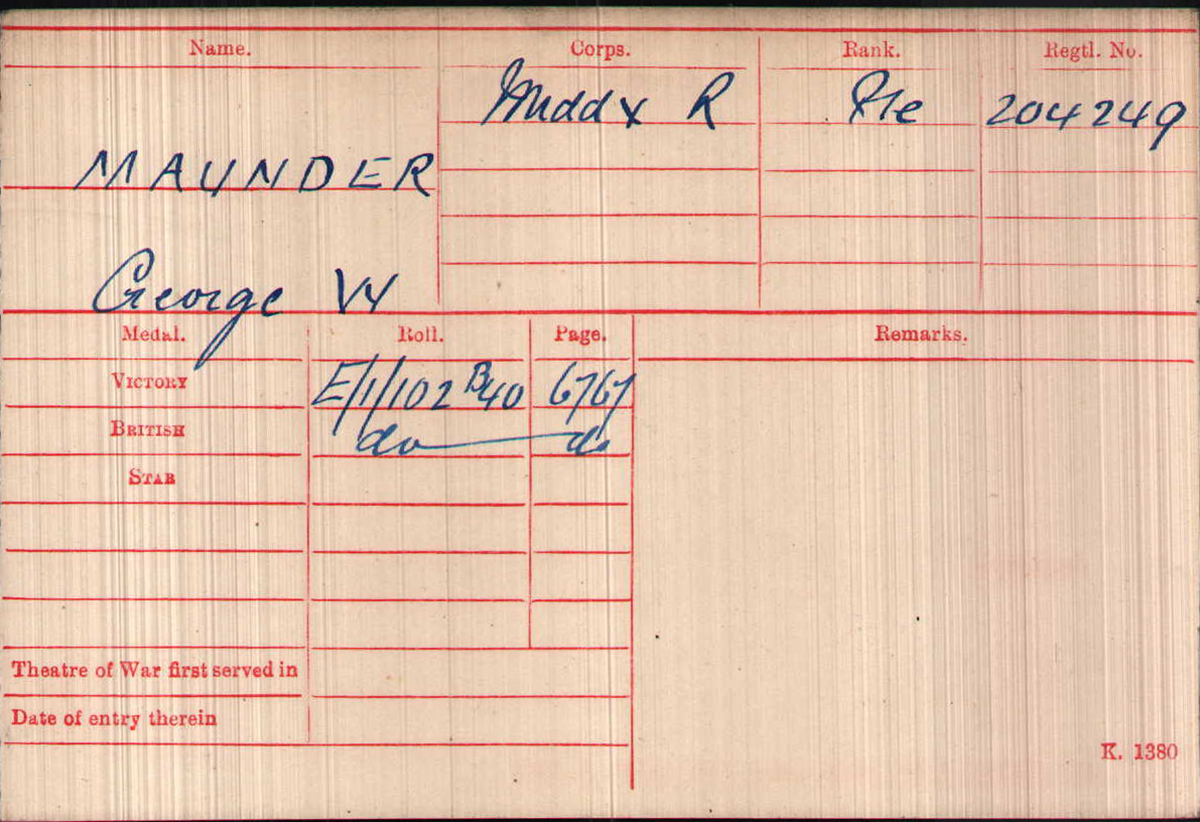 Name. Corps. Rank. Regtl. No.
Middx R Pte 204249
MAUNDER
George W
Medal. Roll. Page. Remarks.
VICTORY E/1/102 B40 6767
BRITISH do do
STAR
Theatre of War first served in
Date of entry therein
K. 1380